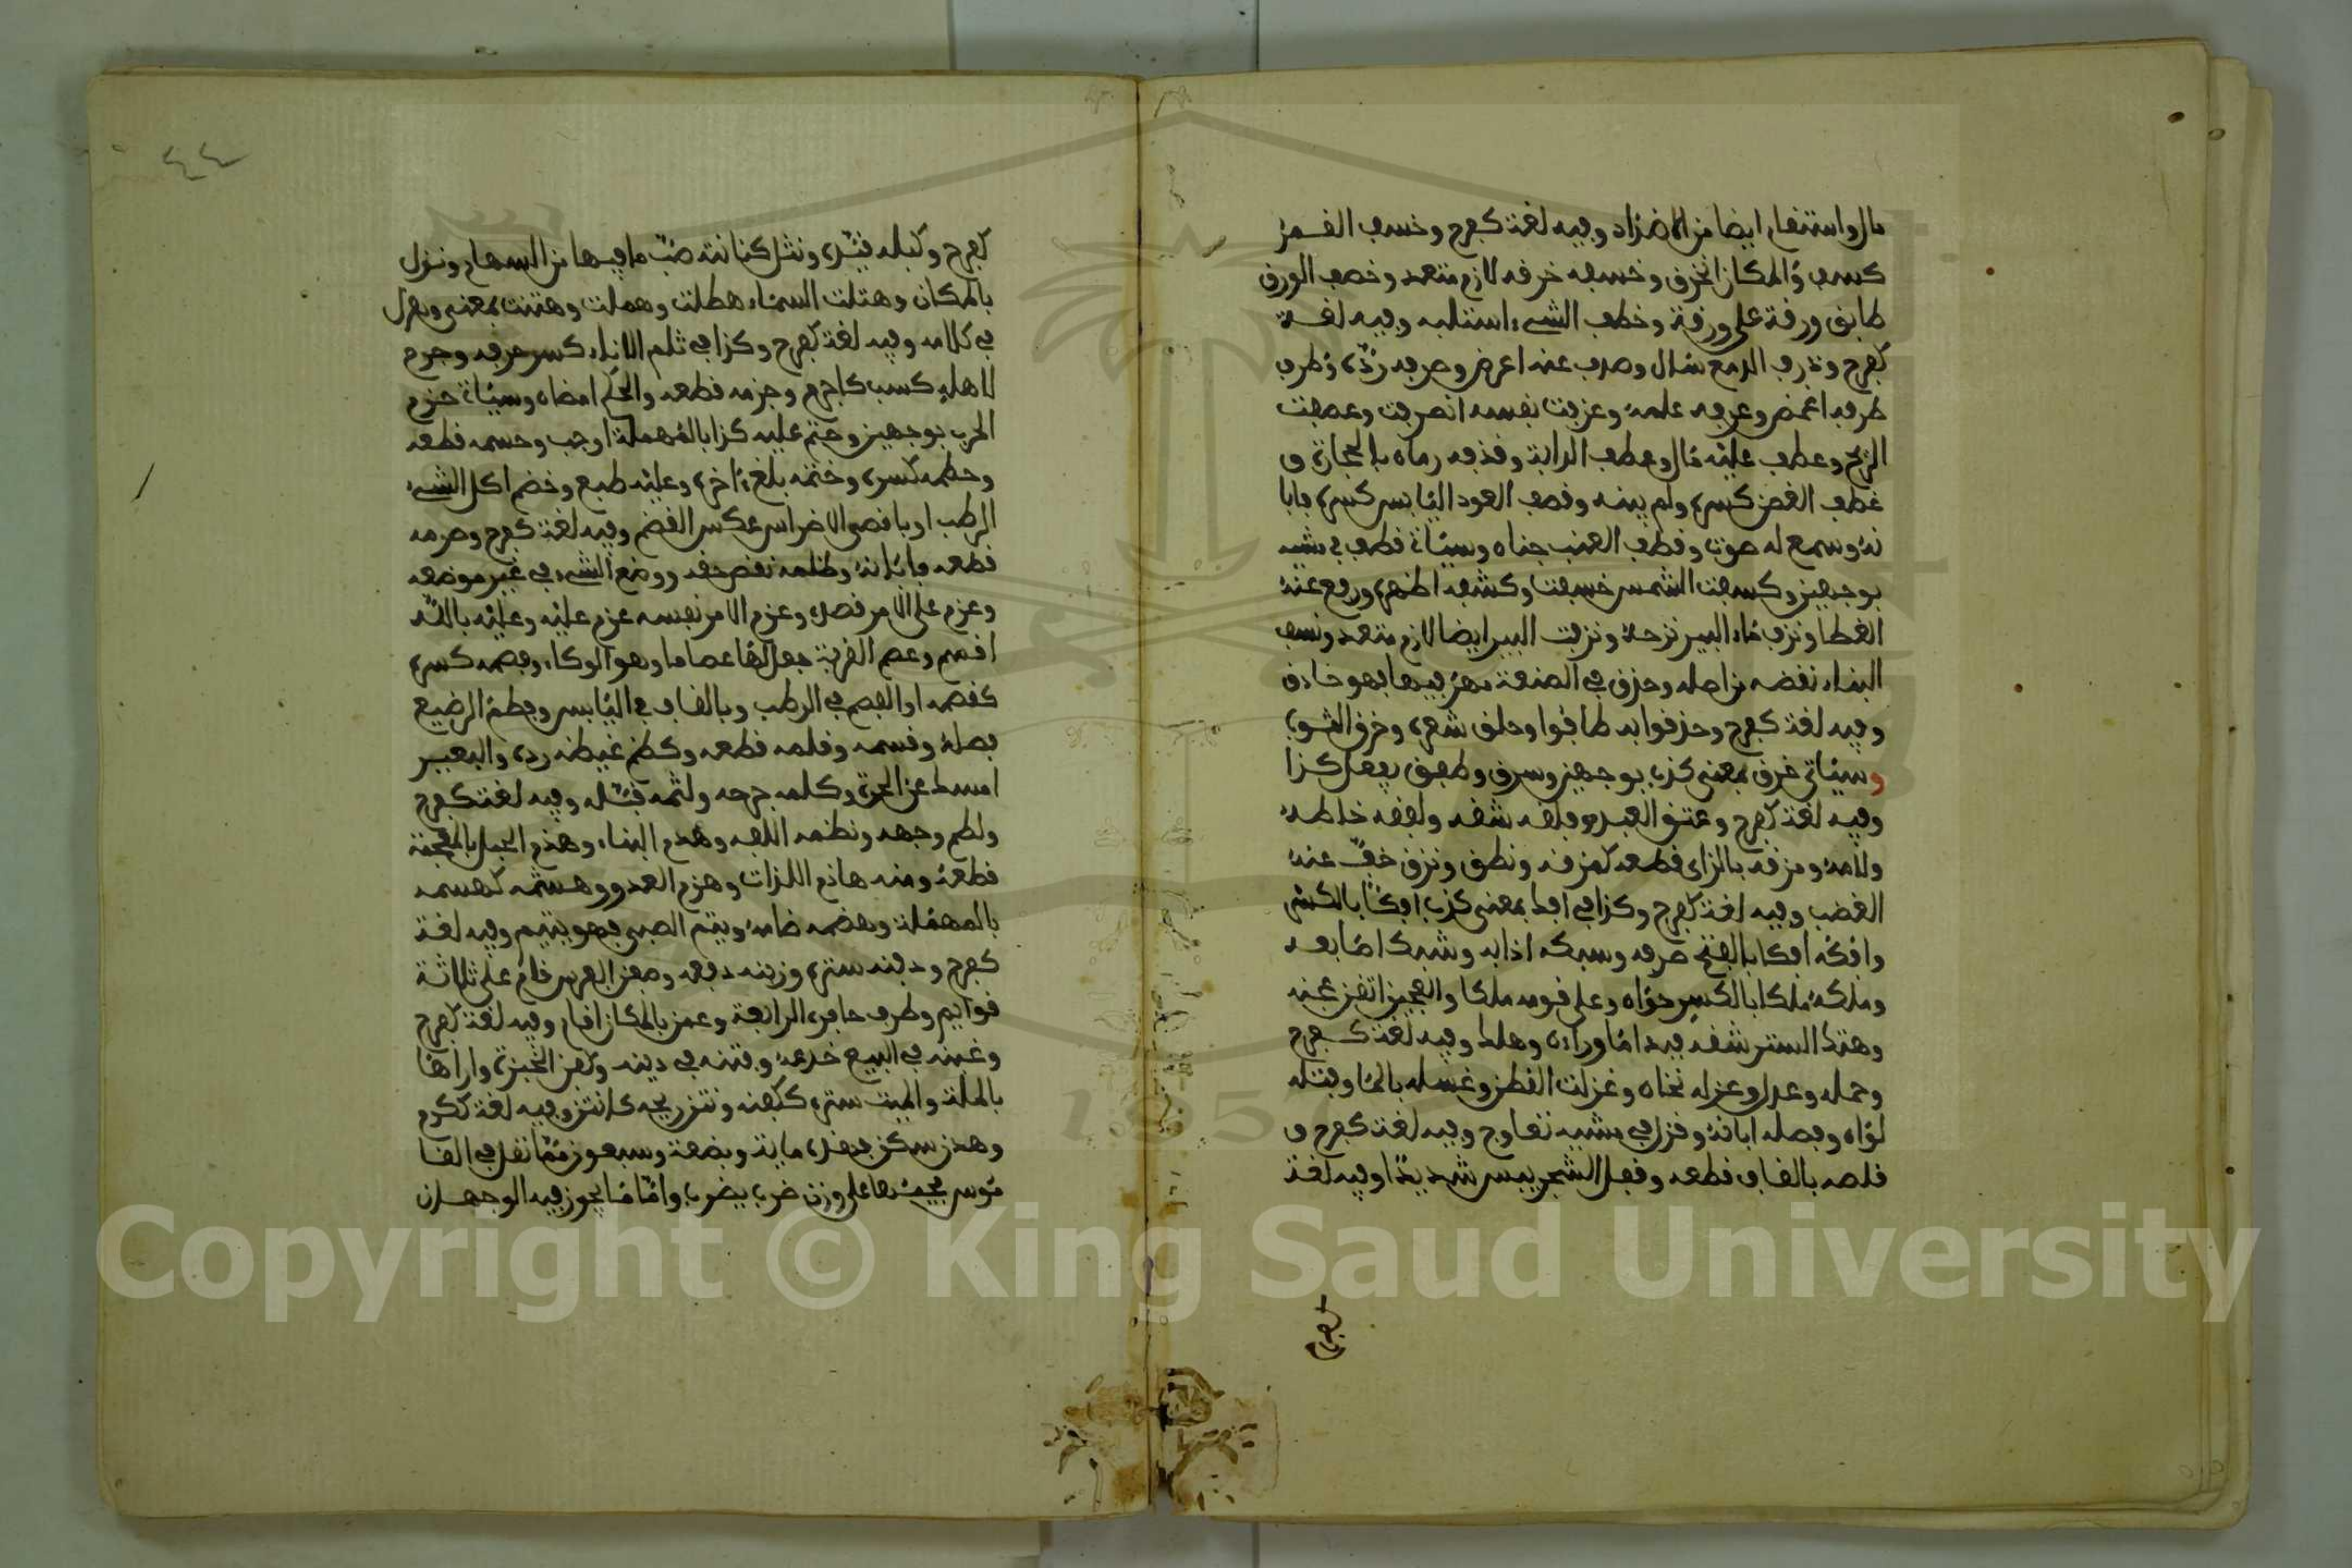 مال واستقام ايضا من الاضداد وفيه لغة كفرح وخسف القمر
كسف والمكان انخرق وخسفه خرقه لازم متعد وخصف الورق
طابق ورقة على ورقة وخطف الشيء استلبه وفيه لغة
كفرح وذرف الدمع سال وصدف عنه اعرض وصرفه رده وطرف
طرفه اغمض وعرفه علمه وعزفت نفسه انصرفت وعصفت
الريح وعطف عليه مال وعطف الدابة وقذفه رماه بالحجارة و
غطف الغصن كسره ولم يبنه وقصف العود اليابس كسره فابا
نه وسمع له صوت وقطف العنب جناه وسياة قطف في مشيه
بوجهين وكسفت الشمس خسفت وكشفه اظهره ورفع عنه
الغطا ونزف ماء البير نزحه ونزفت البير ايضا لازم متعد ونسف
البناء نقضه من اصله وحذق في الصنعة مهر فيها فهو حاذق
وفيه لغة كفرح وحذقوا به طافوا وحلق شعره وخرق الثوب
وسياتي خرق بمعنى كذب بوجهين وسرق وطفق يفعل كذا
وفيه لغة كفرح وعتق العبد وفلقه شقه ولفقه خاطه
ولامه ومزقه بالزاي قطعه كمزقه ونطق ونزق خف عنه
الغضب وفيه لغة كفرح وكذا في افك بمعنى كذب افكا بالكسر
وافكه افكا بالفتح صرفه وسبكه اذابه وشبك اصابعه
وملكه ملكا بالكسر حواه وعلى قومه ملكا والعجين اتقن عجنه
وهتك الستر شقه فبدا ما وراءه وهلك وفيه لغة كفرح
وحمله وعدل وعزله نحاه وغزلت القطن وغسله بالماء وفتله
لواه وفصله ابانه وقزل في مشيه تعاوج وفيه لغة كفرح و
قلصه بالقاف قطعه وقفل الشجر يبس شديدا وفيه لغة
كفرح
٤٤
كفرح وكبله قيده ونثل كنانته صب ما فيها من السهام ونزل
بالمكان وهتلت السماء هطلت وهملت وهتنت بمعنى وهزل
في كلامه وفيه لغة كفرح وكذا في ثلم الاناء كسر حرفه وجرم
لاهله كسب كاجرم وجزمه قطعه والحكم امضاه وسياة حزم
الحرب بوجهين وحتم عليه كذا بالمهملة اوجب وحسمه قطعه
وحطمه كسره وختمه بلغ اخره وعليه طبع وخضم اكل الشيء
الرطب او باقصى الاضراس عكس القضم وفيه لغة كفرح وصرمه
قطعه وابانه وظلمه نقص حقه ووضع الشيء في غير موضعه
وعزم على الامر قصده وعزم الامر نفسه عزم عليه وعليه بالله
اقسم وعصم القربة جعل لها عصاما وهو الوكاء وفصمه كسره
كقصمه او الفصم في الرطب وبالقاف في اليابس وفطم الرضيع
فصله وقسمه وقلمه قطعه وكظم غيظه رده والبعير
امسك عن الجرة وكلمه جرحه ولثمه قبله وفيه لغة كفرح
ولطم وجهه ونظمه الفه وهدم البناء وهذم الحبل بالمعجمة
قطعه ومنه هاذم اللذات وهزم العدو وهشمه كهسمه
بالمهملة وهضمه ضامه ويتم الصبي فهو يتيم وفيه لغة
كفرح ودفنه ستره وزبنه دفعه وصفن الفرس قام على ثلاثة
قوائم وطرف حافره الرابعة وعدن بالمكان اقام وفيه لغة كفرح
وغبنه في البيع خدعه وفتنه في دينه وكفن الخبزة واراها
بالملة والميت ستره ككفنه ونتن ريحه كانتن وفيه لغة ككرم
وهدن سكن فهذه ماية وبضعة وسبعون مثالا نقل في القا
موس مجيئها على وزن ضرب يضرب واما ما يجوز فيه الوجهان